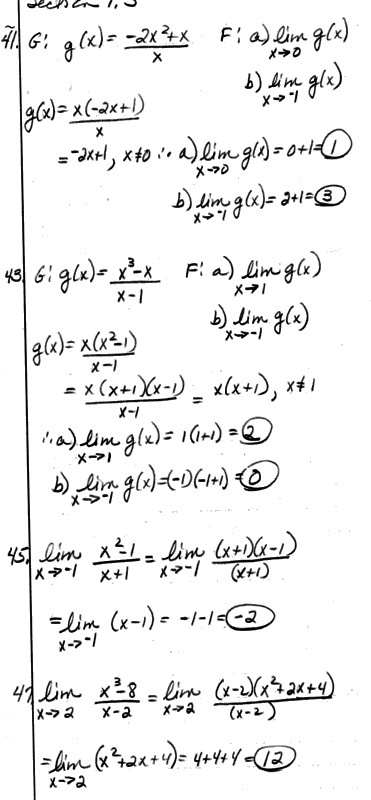 Section 1.3
41. G: g(x) = (-2x²+x)/x F: a) lim x→0 g(x)
b) lim x→-1 g(x)
g(x) = x(-2x+1)/x
= -2x+1, x≠0 ∴ a) lim x→0 g(x) = 0+1 = 1
b) lim x→-1 g(x) = 2+1 = 3
43. G: g(x) = (x³-x)/(x-1) F: a) lim x→1 g(x)
b) lim x→-1 g(x)
g(x) = x(x²-1)/(x-1)
= x(x+1)(x-1)/(x-1) = x(x+1), x≠1
∴ a) lim x→1 g(x) = 1(1+1) = 2
b) lim x→-1 g(x) = (-1)(-1+1) = 0
45. lim x→-1 (x²-1)/(x+1) = lim x→-1 (x+1)(x-1)/(x+1)
= lim x→-1 (x-1) = -1-1 = -2
47. lim x→2 (x³-8)/(x-2) = lim x→2 (x-2)(x²+2x+4)/(x-2)
= lim x→2 (x²+2x+4) = 4+4+4 = 12